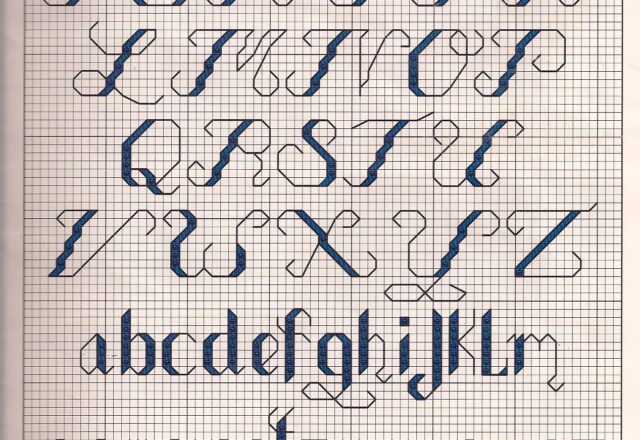 L M N O P
Q R S T U
V W X Y Z
a b c d e f g h i j k l m
t